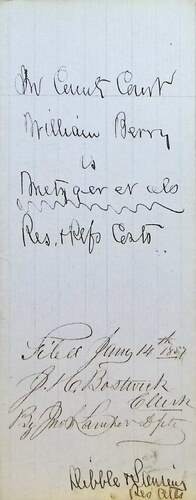 In County Court
William Berry
vs
Metzger et als
Res. & Refs Costs
Filed Jany 14th 1857
J. C. Bostwick
Clerk
By Jno Lamper Dpty
Dibble &
Res Atts